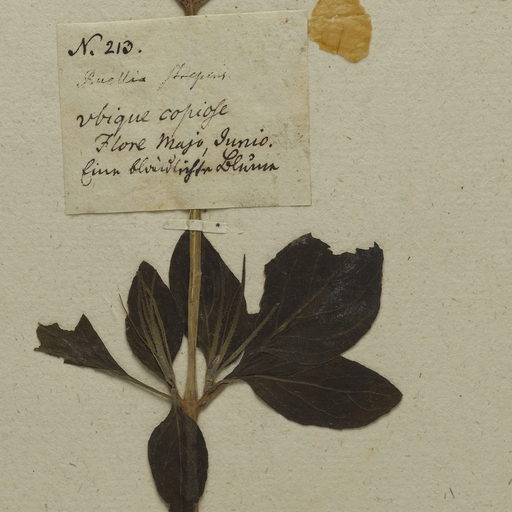 N. 213.
Ruellia strepens
Ubique copiose
Flore Majo, Junio.
Eine blaulichte Blume